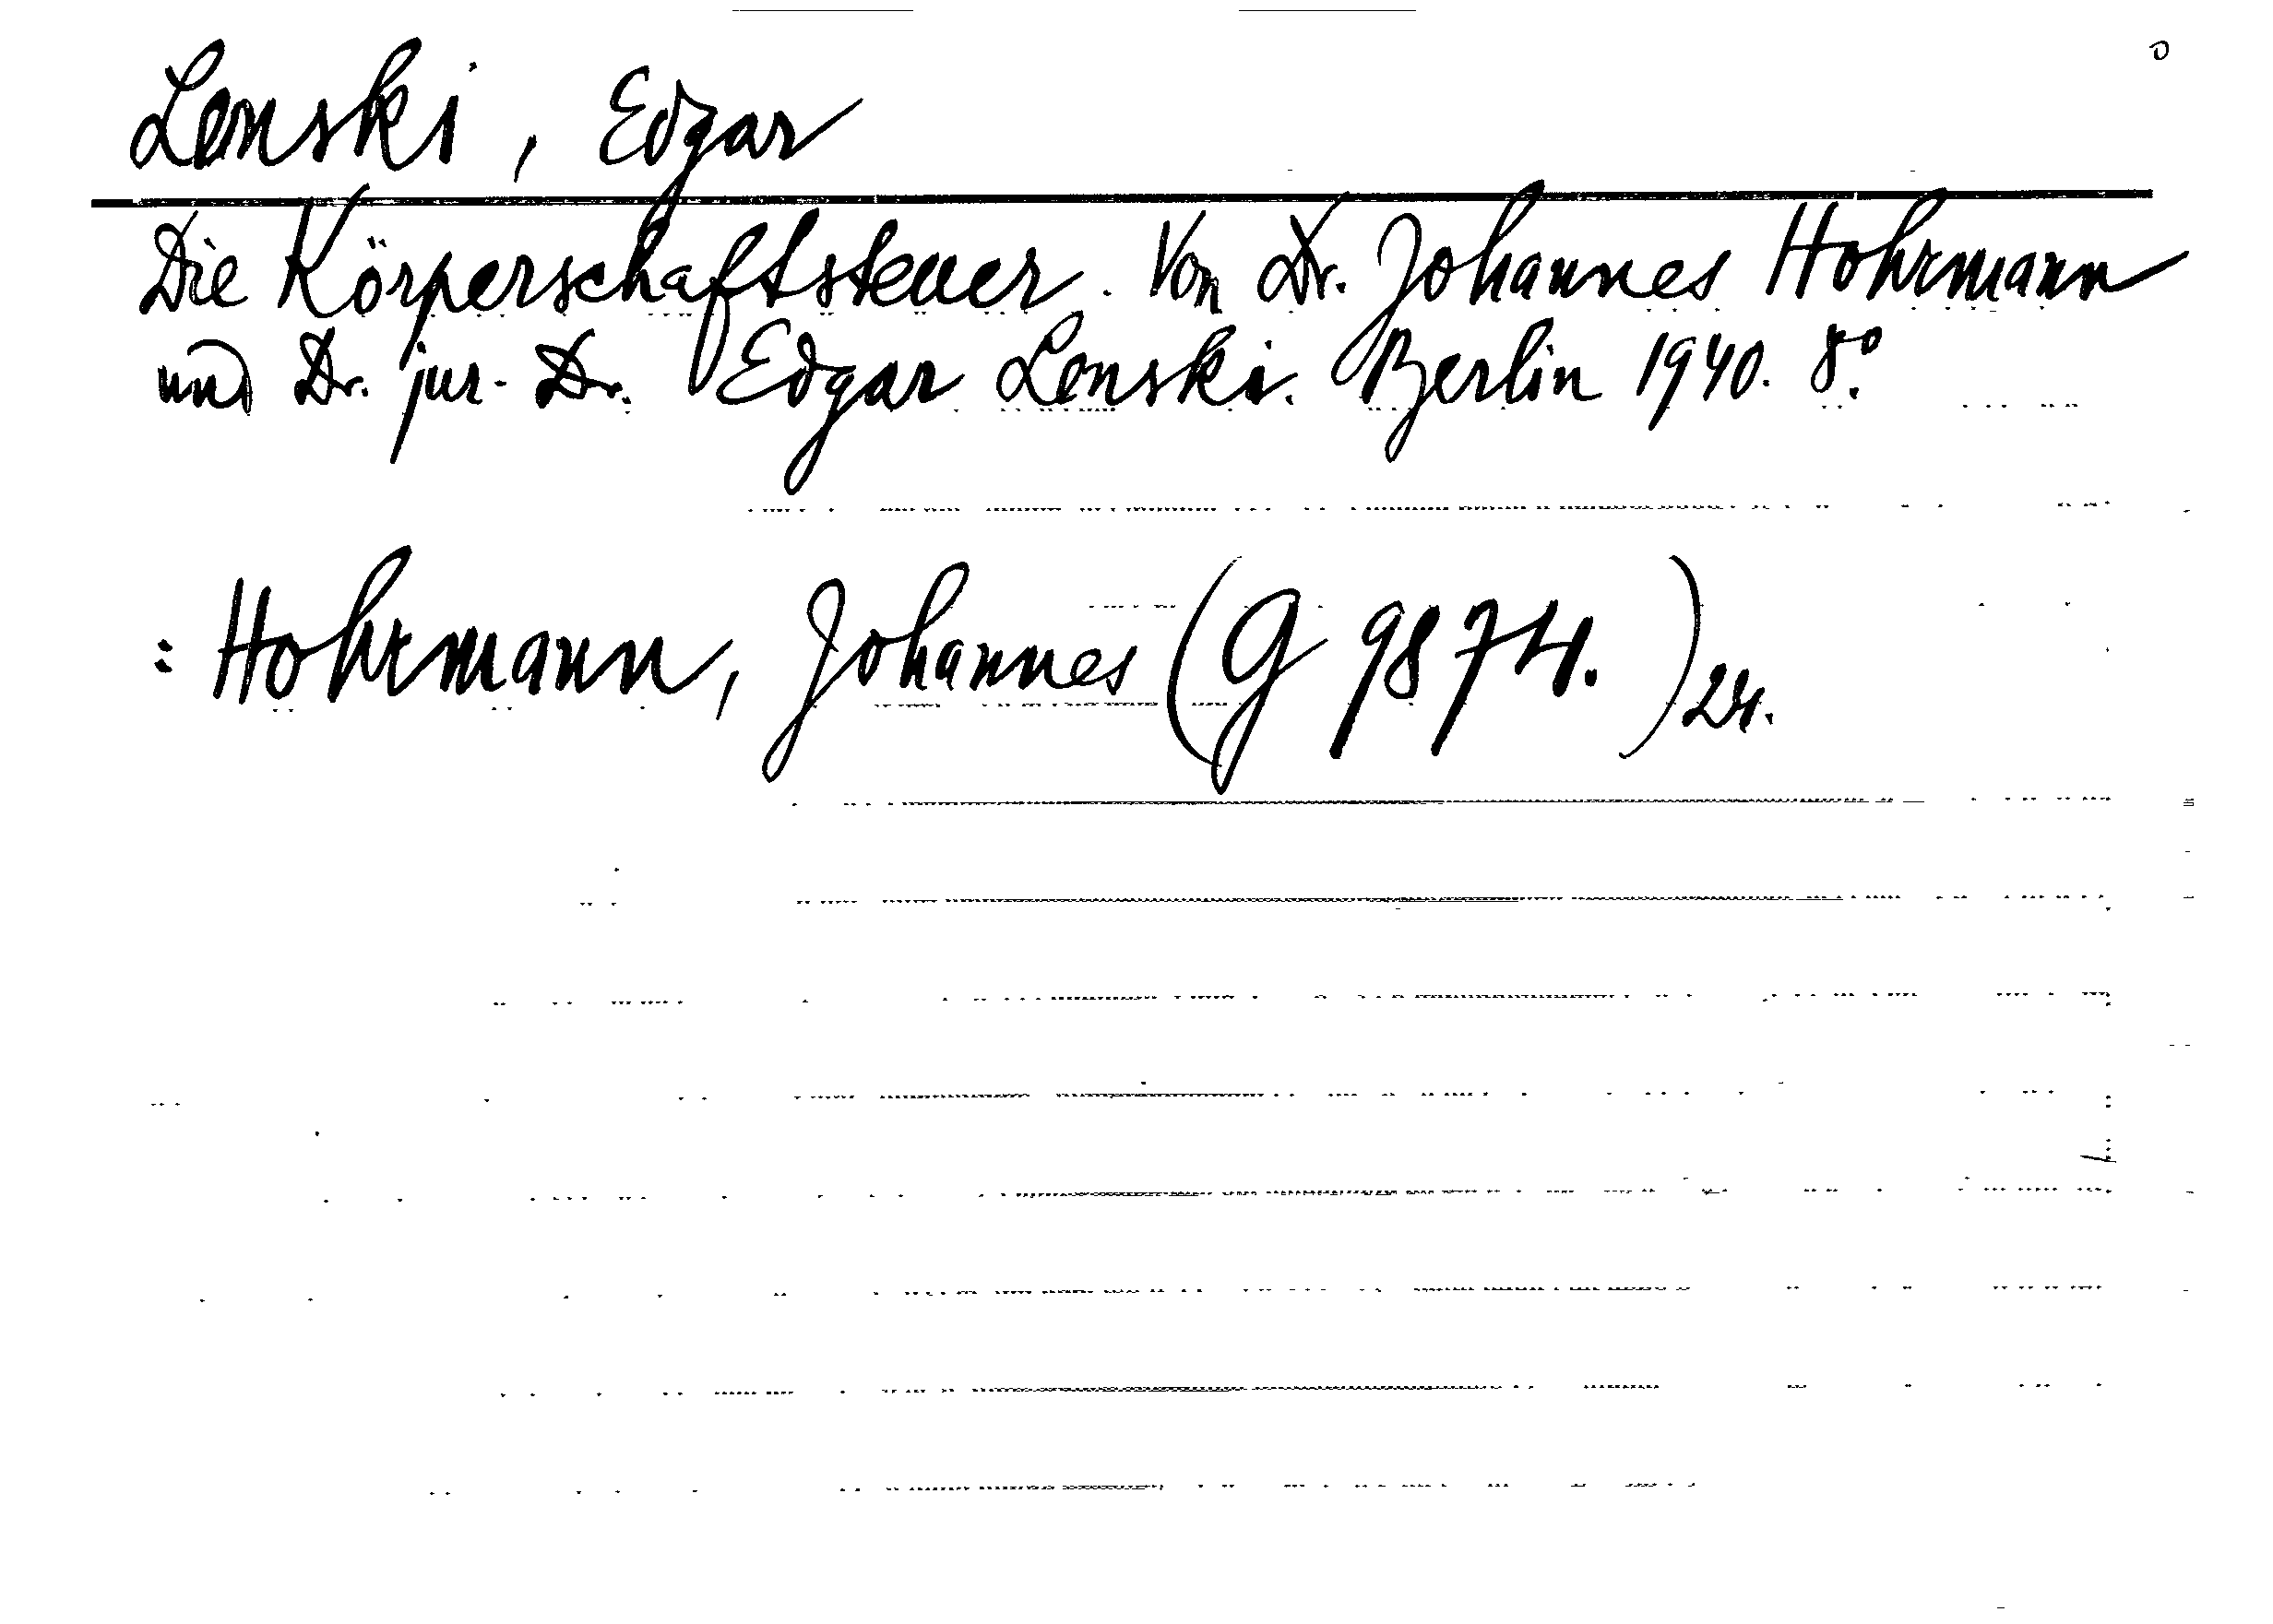 Lenski, Edgar
Die Körperschaftsteuer. Von Dr. Johannes Hohrmann
und Dr. jur. Dr. Edgar Lenski. Berlin 1940. 8°.
: Hohrmann, Johannes (G 9874.) 24.